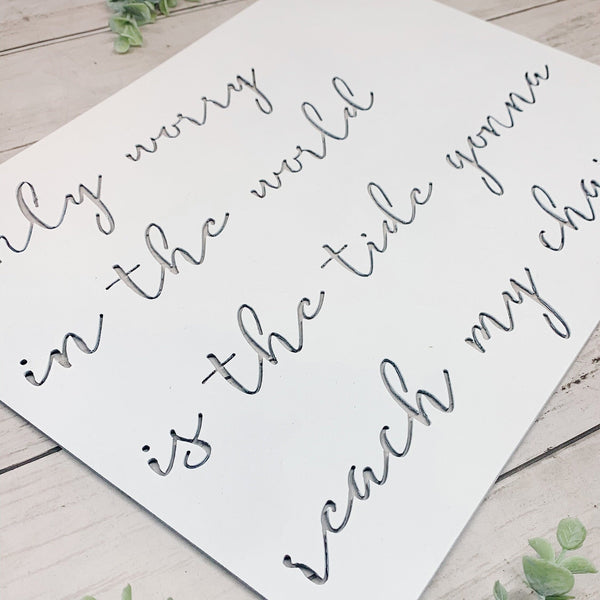 nly worry
in the world
is the tide gonna
reach my chai